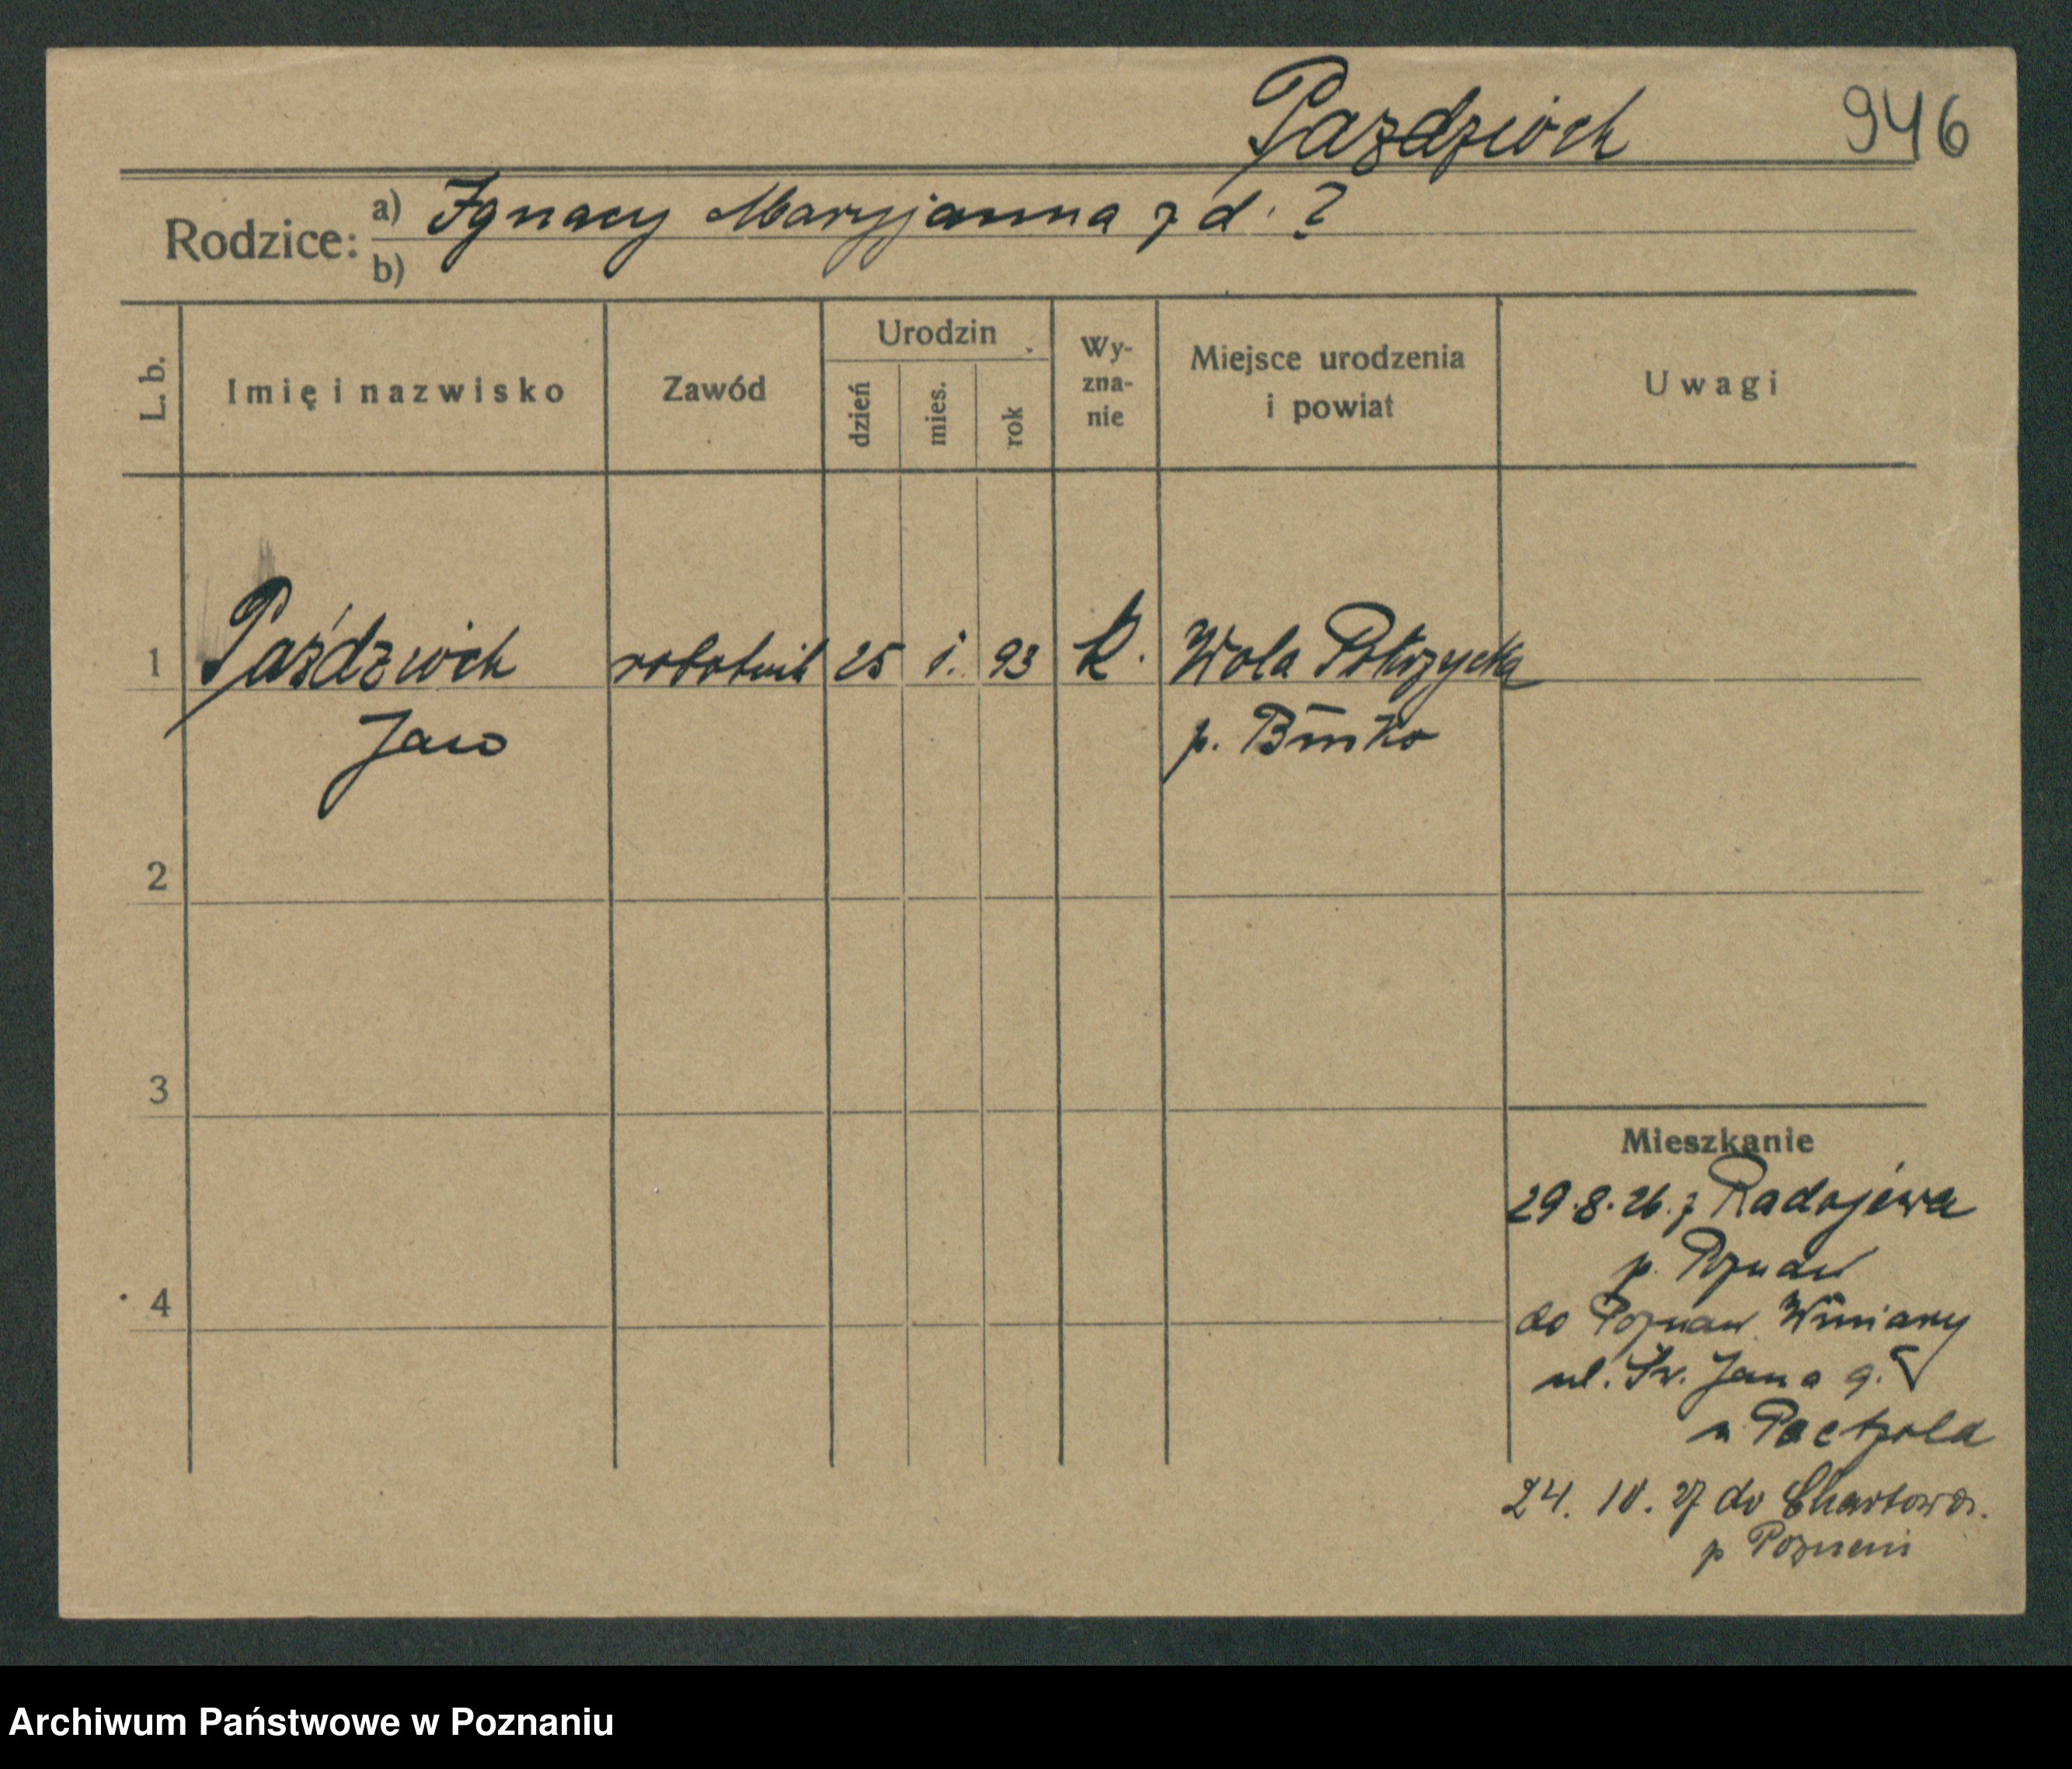 Pazdzioch 946
Rodzice: a) Ignacy Maryjanna z d. ?
b)
L. b. Imię i nazwisko Zawód Urodzin dzień mies. rok Wy-zna-nie Miejsce urodzenia i powiat Uwagi
1 Paździoch robotnik 25 i. 93 k. Wola
Jan p.
2
3
4
Mieszkanie
29.8.26. z Radojewa
p. Poznań
do Poznań Winiary
ul. Św. Jana 9.
u Paetzold
24. 10. 27 do Chartowa.
p Poznań
Archiwum Państwowe w Poznaniu